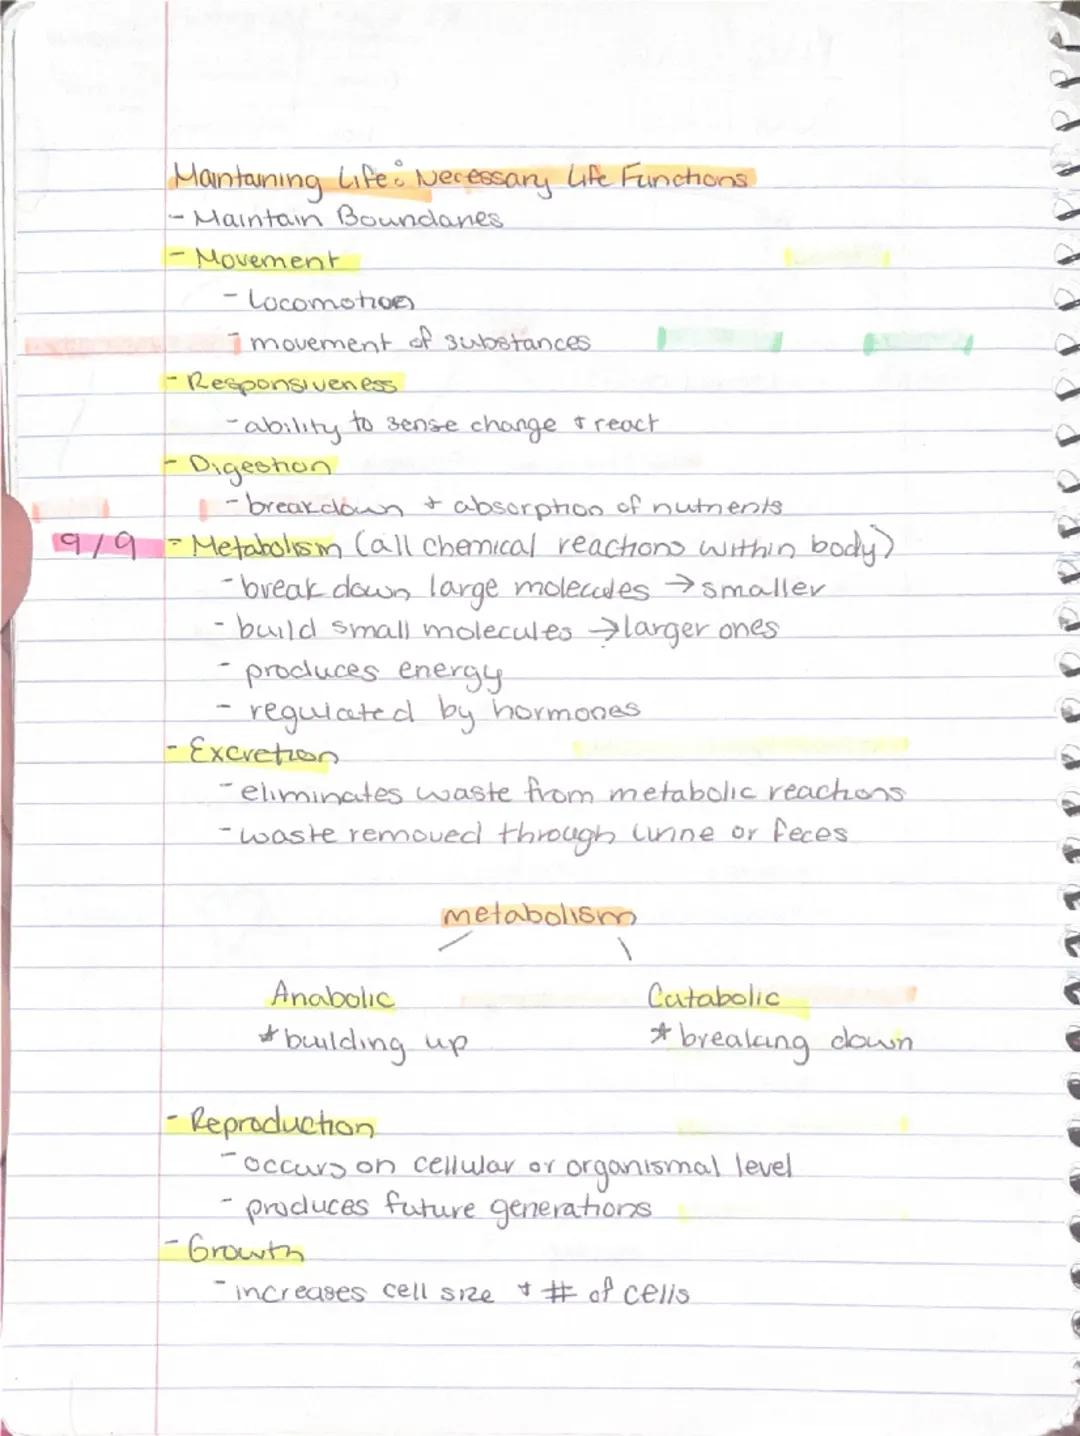 Maintaining Life: Necessary Life Functions
- Maintain Boundaries
- Movement
- locomotion
- movement of substances
- Responsiveness
- ability to sense change + react
- Digestion
- breakdown + absorption of nutrients
9/9 - Metabolism (all chemical reactions within body)
- break down large molecules → smaller
- build small molecules → larger ones
- produces energy
- regulated by hormones
- Excretion
- eliminates waste from metabolic reactions
- waste removed through urine or feces
metabolism
Anabolic Catabolic
* building up * breaking down
- Reproduction
- occurs on cellular or organismal level
- produces future generations
- Growth
- increases cell size + # of cells